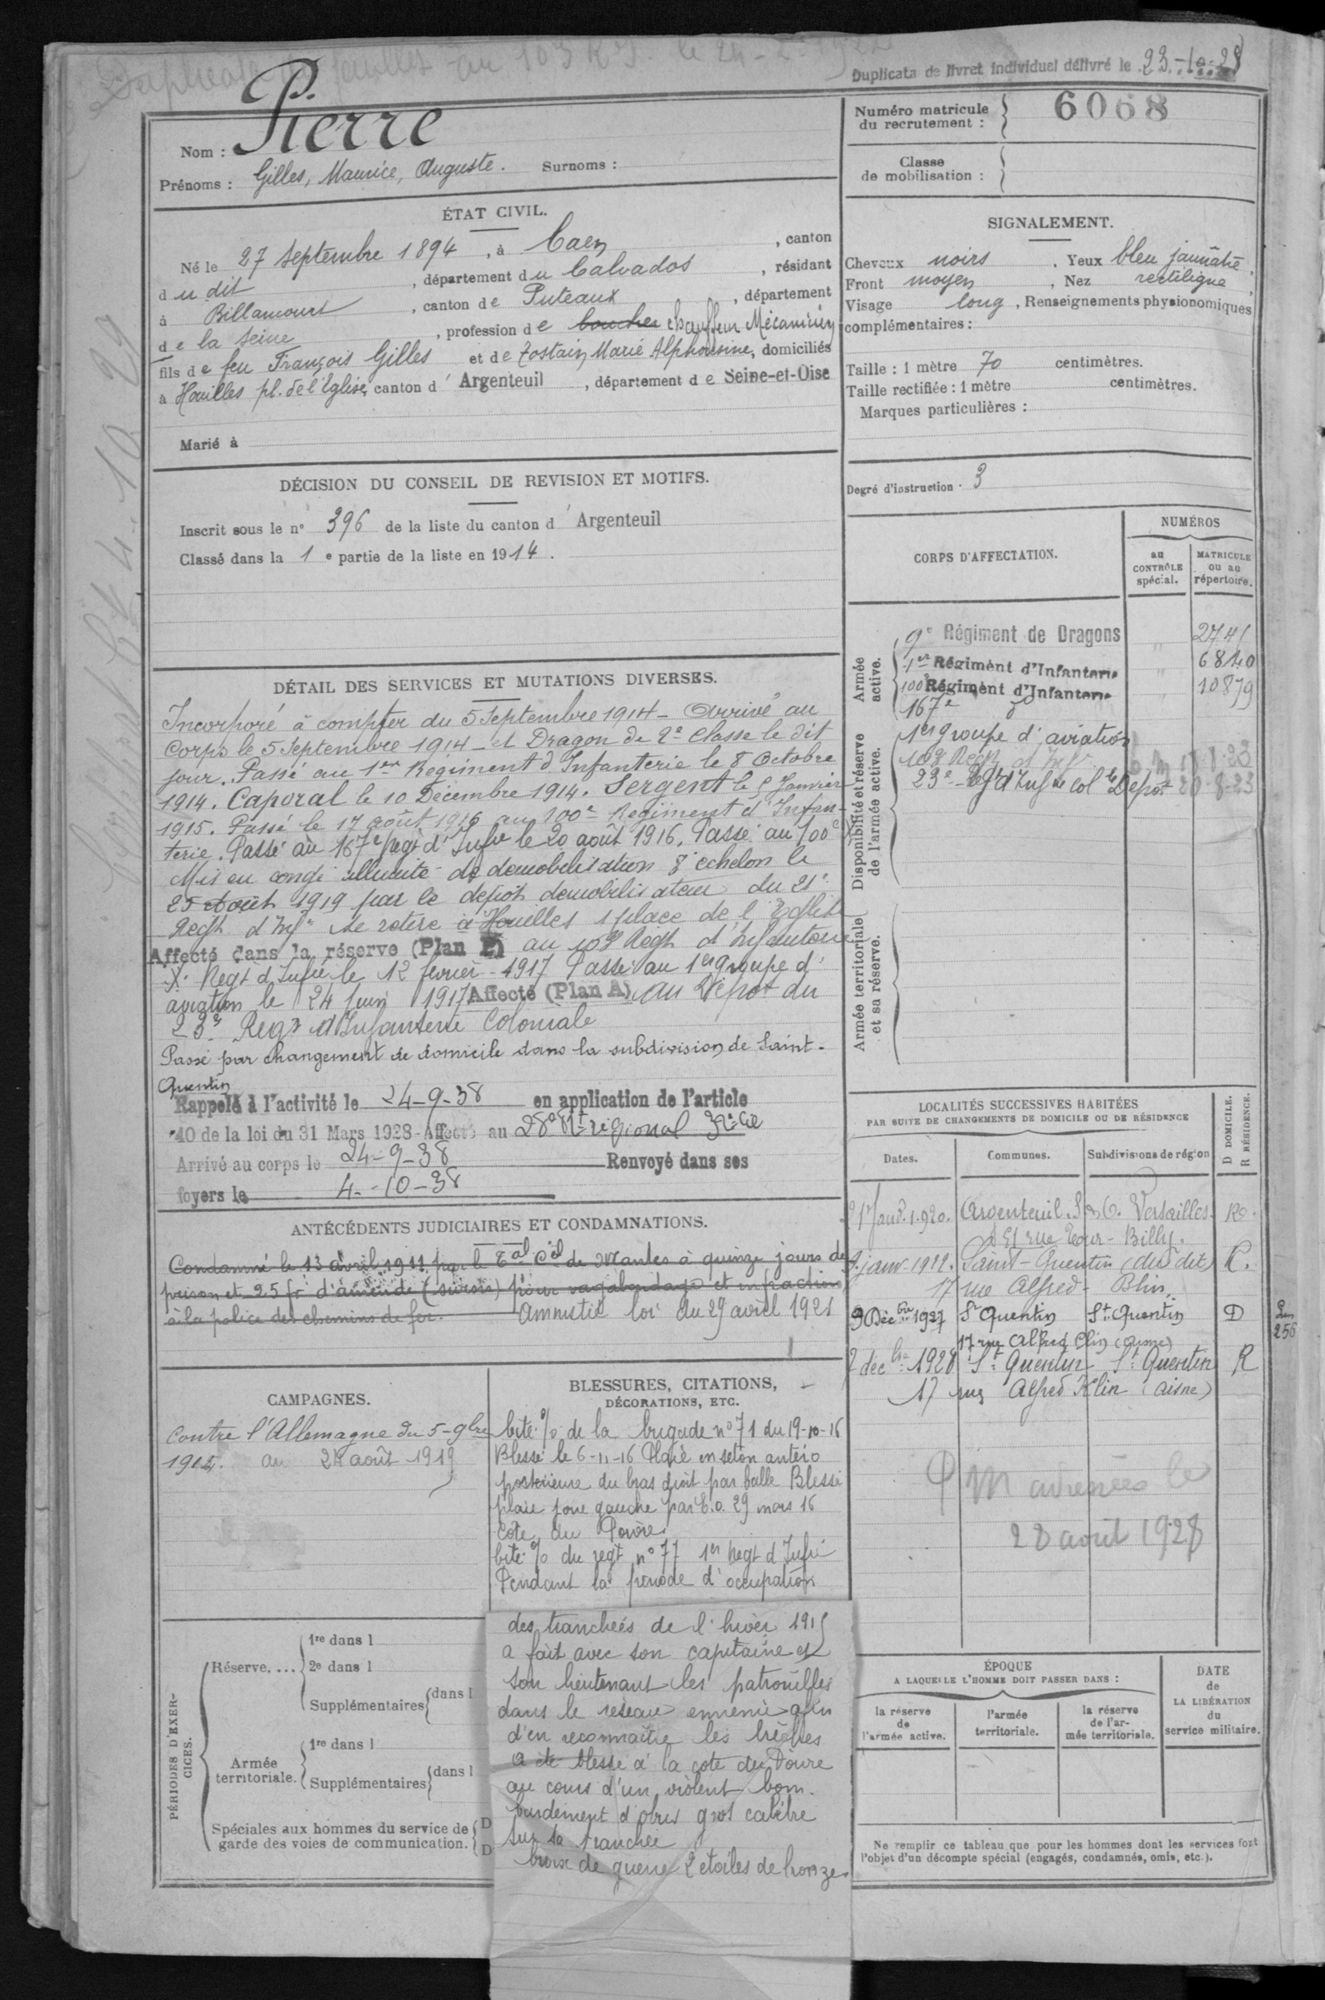 Duplicata de livret individuel délivré le 23-10-28
Nom : Pierre
Prénoms : Gilles, Maurice, Auguste. Surnoms :
Numéro matricule du recrutement : 6068
Classe de mobilisation :
ÉTAT CIVIL.
Né le 27 Septembre 1894, à Caen, canton
du dit, département du Calvados, résidant
à Billancourt, canton de Puteaux, département
de la Seine, profession de boucher chauffeur Mécanicien
fils de feu François Gilles et de Tostain Marie Alphonsine, domiciliés
à Houilles pl. de l'Eglise, canton d'Argenteuil, département de Seine-et-Oise
Marié à
SIGNALEMENT.
Cheveux noirs. Yeux bleu jaunâtre,
Front moyen, Nez rectiligne,
Visage long, Renseignements physionomiques
complémentaires :
Taille : 1 mètre 70 centimètres.
Taille rectifiée : 1 mètre centimètres.
Marques particulières :
Degré d'instruction. 3
DÉCISION DU CONSEIL DE REVISION ET MOTIFS.
Inscrit sous le n° 396 de la liste du canton d'Argenteuil
Classé dans la 1e partie de la liste en 1914.
CORPS D'AFFECTATION.
NUMÉROS
au CONTRÔLE spécial.
MATRICULE ou au répertoire.
Armée active.
9e Régiment de Dragons " 2741
1er Régiment d'Infanterie " 6840
100e Régiment d'Infanterie " 10879
167e d°
Disponibilité et réserve de l'armée active.
1er groupe d'aviation
23e Rgt d'Inf ie Col le Dépôt 20-8-23
Armée territoriale et sa réserve.
DÉTAIL DES SERVICES ET MUTATIONS DIVERSES.
Incorporé à compter du 5 Septembre 1914 - Arrivé au
Corps le 5 Septembre 1914 - et Dragon de 2e Classe le dit
jour. Passé au 1er Régiment d'Infanterie le 8 Octobre
1914. Caporal le 10 Décembre 1914. Sergent le 5 Janvier
1915. Passé le 17 août 1916 au 100e Régiment d'Infan-
terie. Passé au 167e Regt d'Infie le 20 août 1916. Passé au 100e X
Mis en congé illimité de démobilisation 8e échelon le
25 Août 1919 par le dépôt démobilisateur du 21e
Regt d'Infie Se retire à Houilles 1 place de l'Eglise
Affecté dans la réserve (Plan au Regt d'Infanterie
X. Regt d'Infie le 12 février 1917 Passé au 1er groupe d'
aviation le 24 Juin 1917 Affecté (Plan A) au Dépôt du
23e Regt d'Infanterie Coloniale
Passé par changement de domicile dans la subdivision de Saint-
Quentin
Rappelé à l'activité le 24-9-38 en application de l'article
40 de la loi du 31 Mars 1928 - Affecté au 28e Rt régional
Arrivé au corps le 24-9-38 Renvoyé dans ses
foyers le 4-10-38
LOCALITÉS SUCCESSIVES HABITÉES
PAR SUITE DE CHANGEMENTS DE DOMICILE OU DE RÉSIDENCE
D DOMICILE. R RÉSIDENCE.
Dates. Communes. Subdivisions de région
Janv. 1920. Argenteuil. S & O. Versailles.
rue Tour-Billy.
janv 1922. Saint-Quentin (du dit) R.
17 rue Alfred-Blin.
9 Décbre 1927 St Quentin St Quentin D
17 rue Alfred Clin (Aisne)
2 décbre 1928 St Quentin St Quentin R
17 rue Alfred Klin (Aisne)
28 août 1928
256
ANTÉCÉDENTS JUDICIAIRES ET CONDAMNATIONS.
Condamné le 13 avril 1911 par le Tal Cel de Mantes à quinze jours de
prison et 25 fr d'amende (sursis) pour vagabondage et infraction
à la police des chemins de fer. Amnistié loi du 29 avril 1921
CAMPAGNES.
Contre l'Allemagne du 5-9bre
1914 au 24 août 1919
BLESSURES, CITATIONS,
DÉCORATIONS, ETC.
Cité % de la brigade n° 71 du 19-10-16
Blessé le 6-11-16 Plaie en seton antéro
postérieure du bras droit par balle Blessé
plaie joue gauche par E.O. 29 mars 16
Cote du Poivre
Cité % du regt n° 77 1er Regt d'Infie
Pendant la période d'occupation
des tranchées de l'hiver 1915
a fait avec son capitaine et
son lieutenant les patrouilles
dans le réseau ennemi afin
d'en reconnaître les brèches
a été blessé à la cote du Poivre
au cours d'un violent bom-
bardement d'obus gros calibre
sur sa tranchée
Croix de guerre 2 étoiles de bronze
PÉRIODES D'EXERCICES.
Réserve.... 1re dans l
2e dans l
Supplémentaires dans l
Armée territoriale. 1re dans l
Supplémentaires dans l
Spéciales aux hommes du service de garde des voies de communication. D D
ÉPOQUE
A LAQUELLE L'HOMME DOIT PASSER DANS :
la réserve de l'armée active.
l'armée territoriale.
la réserve de l'armée territoriale.
DATE de LA LIBÉRATION du service militaire.
Ne remplir ce tableau que pour les hommes dont les services font
l'objet d'un décompte spécial (engagés, condamnés, omis, etc.).